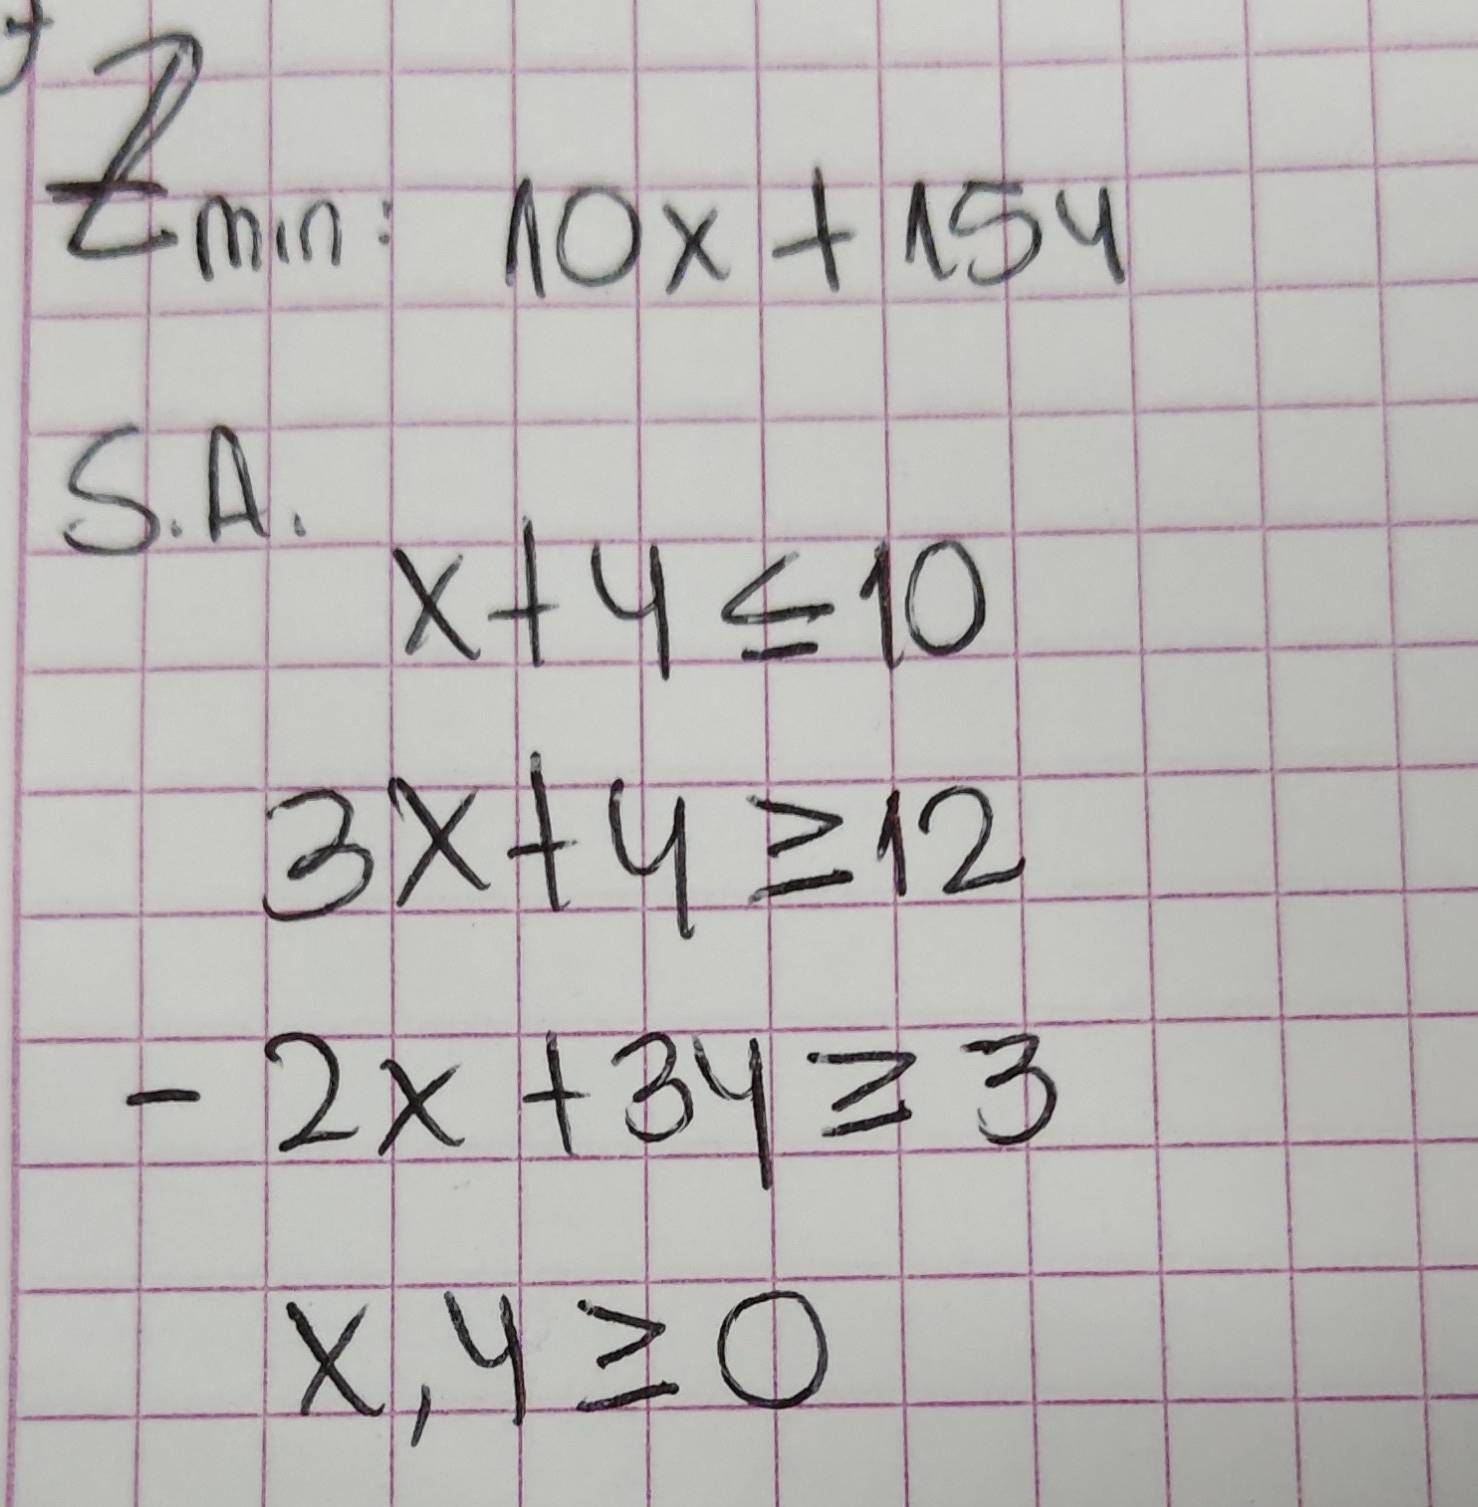 Zmin: 10x + 15y
S.A.
x + y ≤ 10
3x + y ≥ 12
- 2x + 3y ≥ 3
x, y ≥ 0